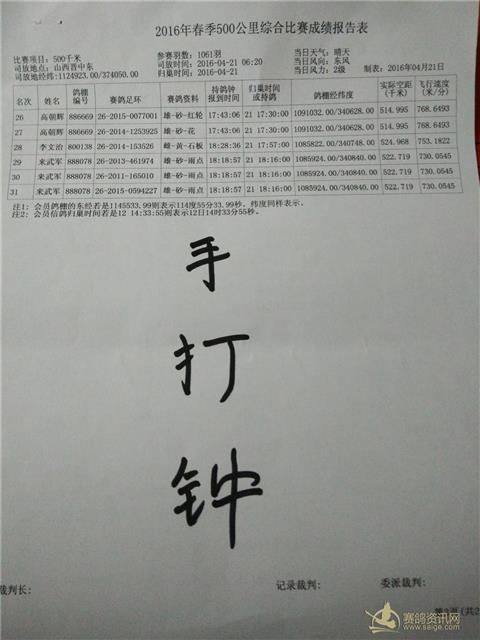 2016年春季500公里综合比赛成绩报告表
比赛项目: 500千米 参赛羽数: 1061羽 当日天气: 晴天
司放地点: 山西晋中东 司放时间: 2016-04-21 06:20 当日风向: 东风
司放地经纬: 1124923.00/374050.00 归巢时间: 2016-04-21 当日风力: 2级 制表: 2016年04月21日
名次 姓名 鸽棚编号 赛鸽足环 赛鸽资料 持鸽钟报到时间 归巢时间或持鸽 鸽棚经纬度 实际空距(千米) 飞行速度(米/分)
26 高朝辉 886669 26-2015-0077001 雄-砂-红轮 17:43:06 21 17:30:00 1091032.00/340628.00 514.995 768.6493
27 高朝辉 886669 26-2014-1253925 雄-砂-花 17:43:06 21 17:30:00 1091032.00/340628.00 514.995 768.6493
28 李文治 800138 26-2014-153526 雌-黄-石板 18:28:36 21 17:57:00 1085822.00/340748.00 524.968 753.1829
29 来武军 888078 26-2013-461974 雄-砂-雨点 18:18:57 21 18:16:00 1085924.00/340840.00 522.719 730.0545
30 来武军 888078 26-2011-165010 雄-砂-雨点 18:18:57 21 18:16:00 1085924.00/340840.00 522.719 730.0545
31 来武军 888078 26-2015-0594227 雄-砂-雨点 18:18:57 21 18:16:00 1085924.00/340840.00 522.719 730.0545
注1: 会员鸽棚的东经若是1145533.99则表示114度55分33.99秒，纬度同样表示。
注2: 会员信鸽归巢时间若是12 14:33:55则表示12日14时33分55秒。
手
打
钟
裁判长: 记录裁判: 委派裁判:
赛鸽资讯网
www.saige.com